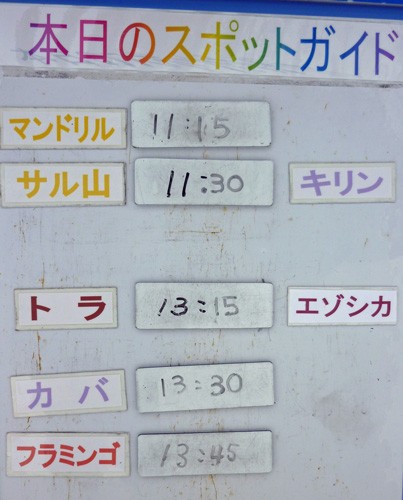 本日のスポットガイド
マンドリル 11:15
サル山 11:30 キリン
トラ 13:15 エゾシカ
カバ 13:30
フラミンゴ 13:45